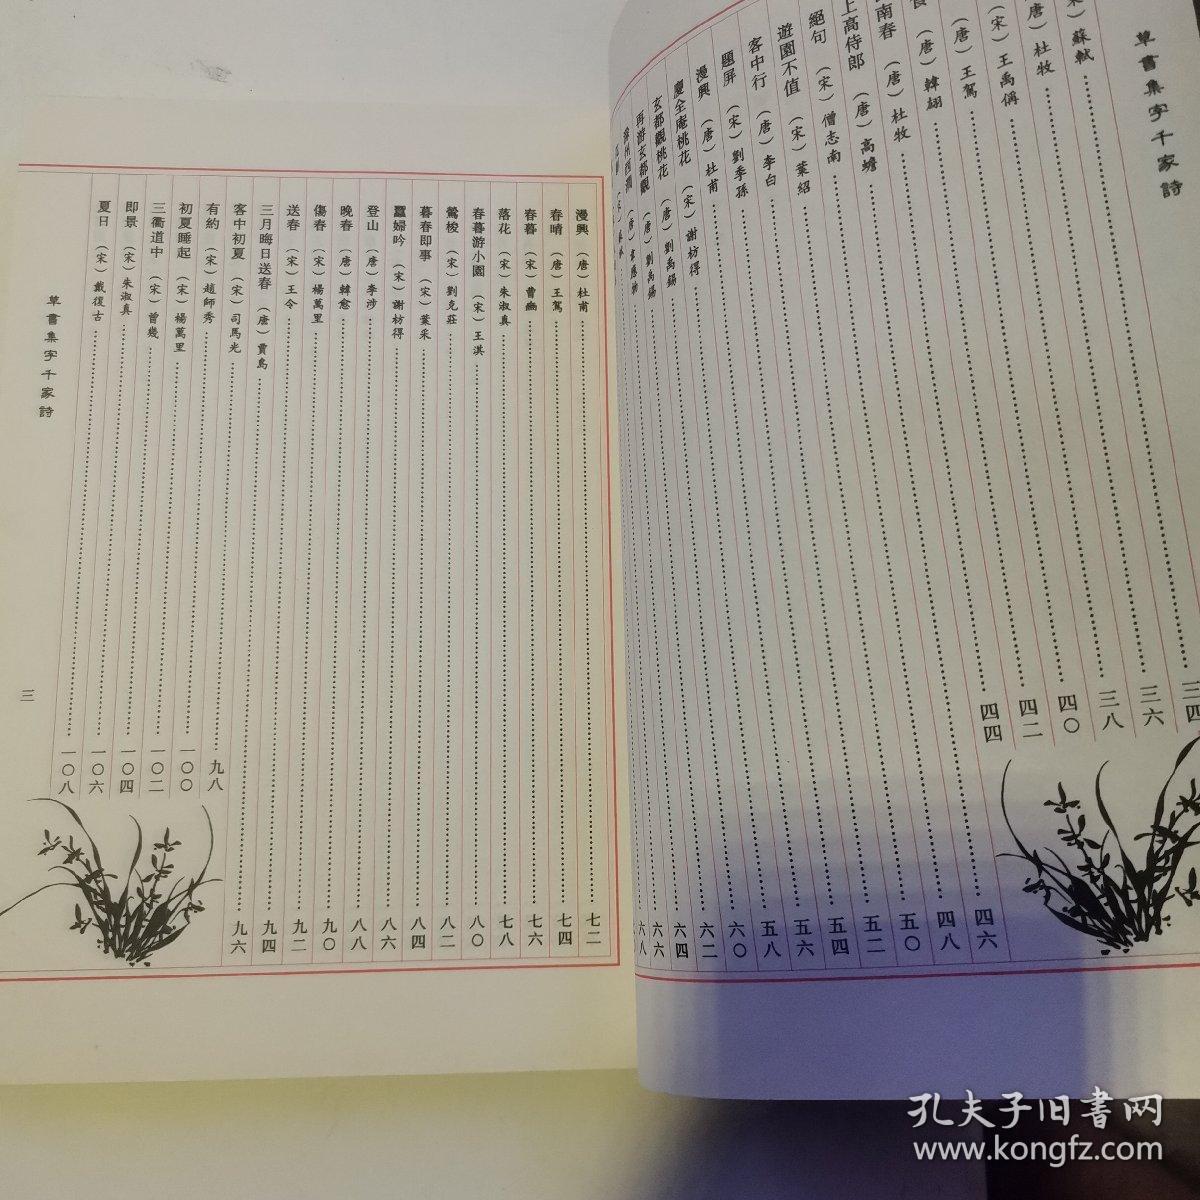 草書集字千家詩
宋）蘇軾……三四
唐）杜牧……三六
宋）王禹偁……三八
（唐）王駕……四〇
（唐）韓翃……四二
南春（唐）杜牧……四四
上高侍郎（唐）高蟾……四六
絕句（宋）僧志南……四八
遊園不值（宋）葉紹……五〇
客中行（唐）李白……五二
題屏（宋）劉季孫……五四
漫興（唐）杜甫……五六
慶全庵桃花（宋）謝枋得……五八
玄都觀桃花（唐）劉禹錫……六〇
再游玄都觀（唐）劉禹錫……六二
滁州西澗（唐）韋應物……六四
六六
六八
漫興（唐）杜甫……七二
春晴（唐）王駕……七四
春暮（宋）曹豳……七六
落花（宋）朱淑真……七八
春暮游小園（宋）王淇……八〇
鶯梭（宋）劉克莊……八二
暮春即事（宋）葉采……八四
蠶婦吟（宋）謝枋得……八六
登山（唐）李涉……八八
晚春（唐）韓愈……九〇
傷春（宋）楊萬里……九二
送春（宋）王令……九四
三月晦日送春（唐）賈島……九六
客中初夏（宋）司馬光……九八
有約（宋）趙師秀……一〇〇
初夏睡起（宋）楊萬里……一〇二
三衢道中（宋）曾幾……一〇四
即景（宋）朱淑真……一〇六
夏日（宋）戴復古……一〇八
草書集字千家詩
三
孔夫子旧書网
www.kongfz.com